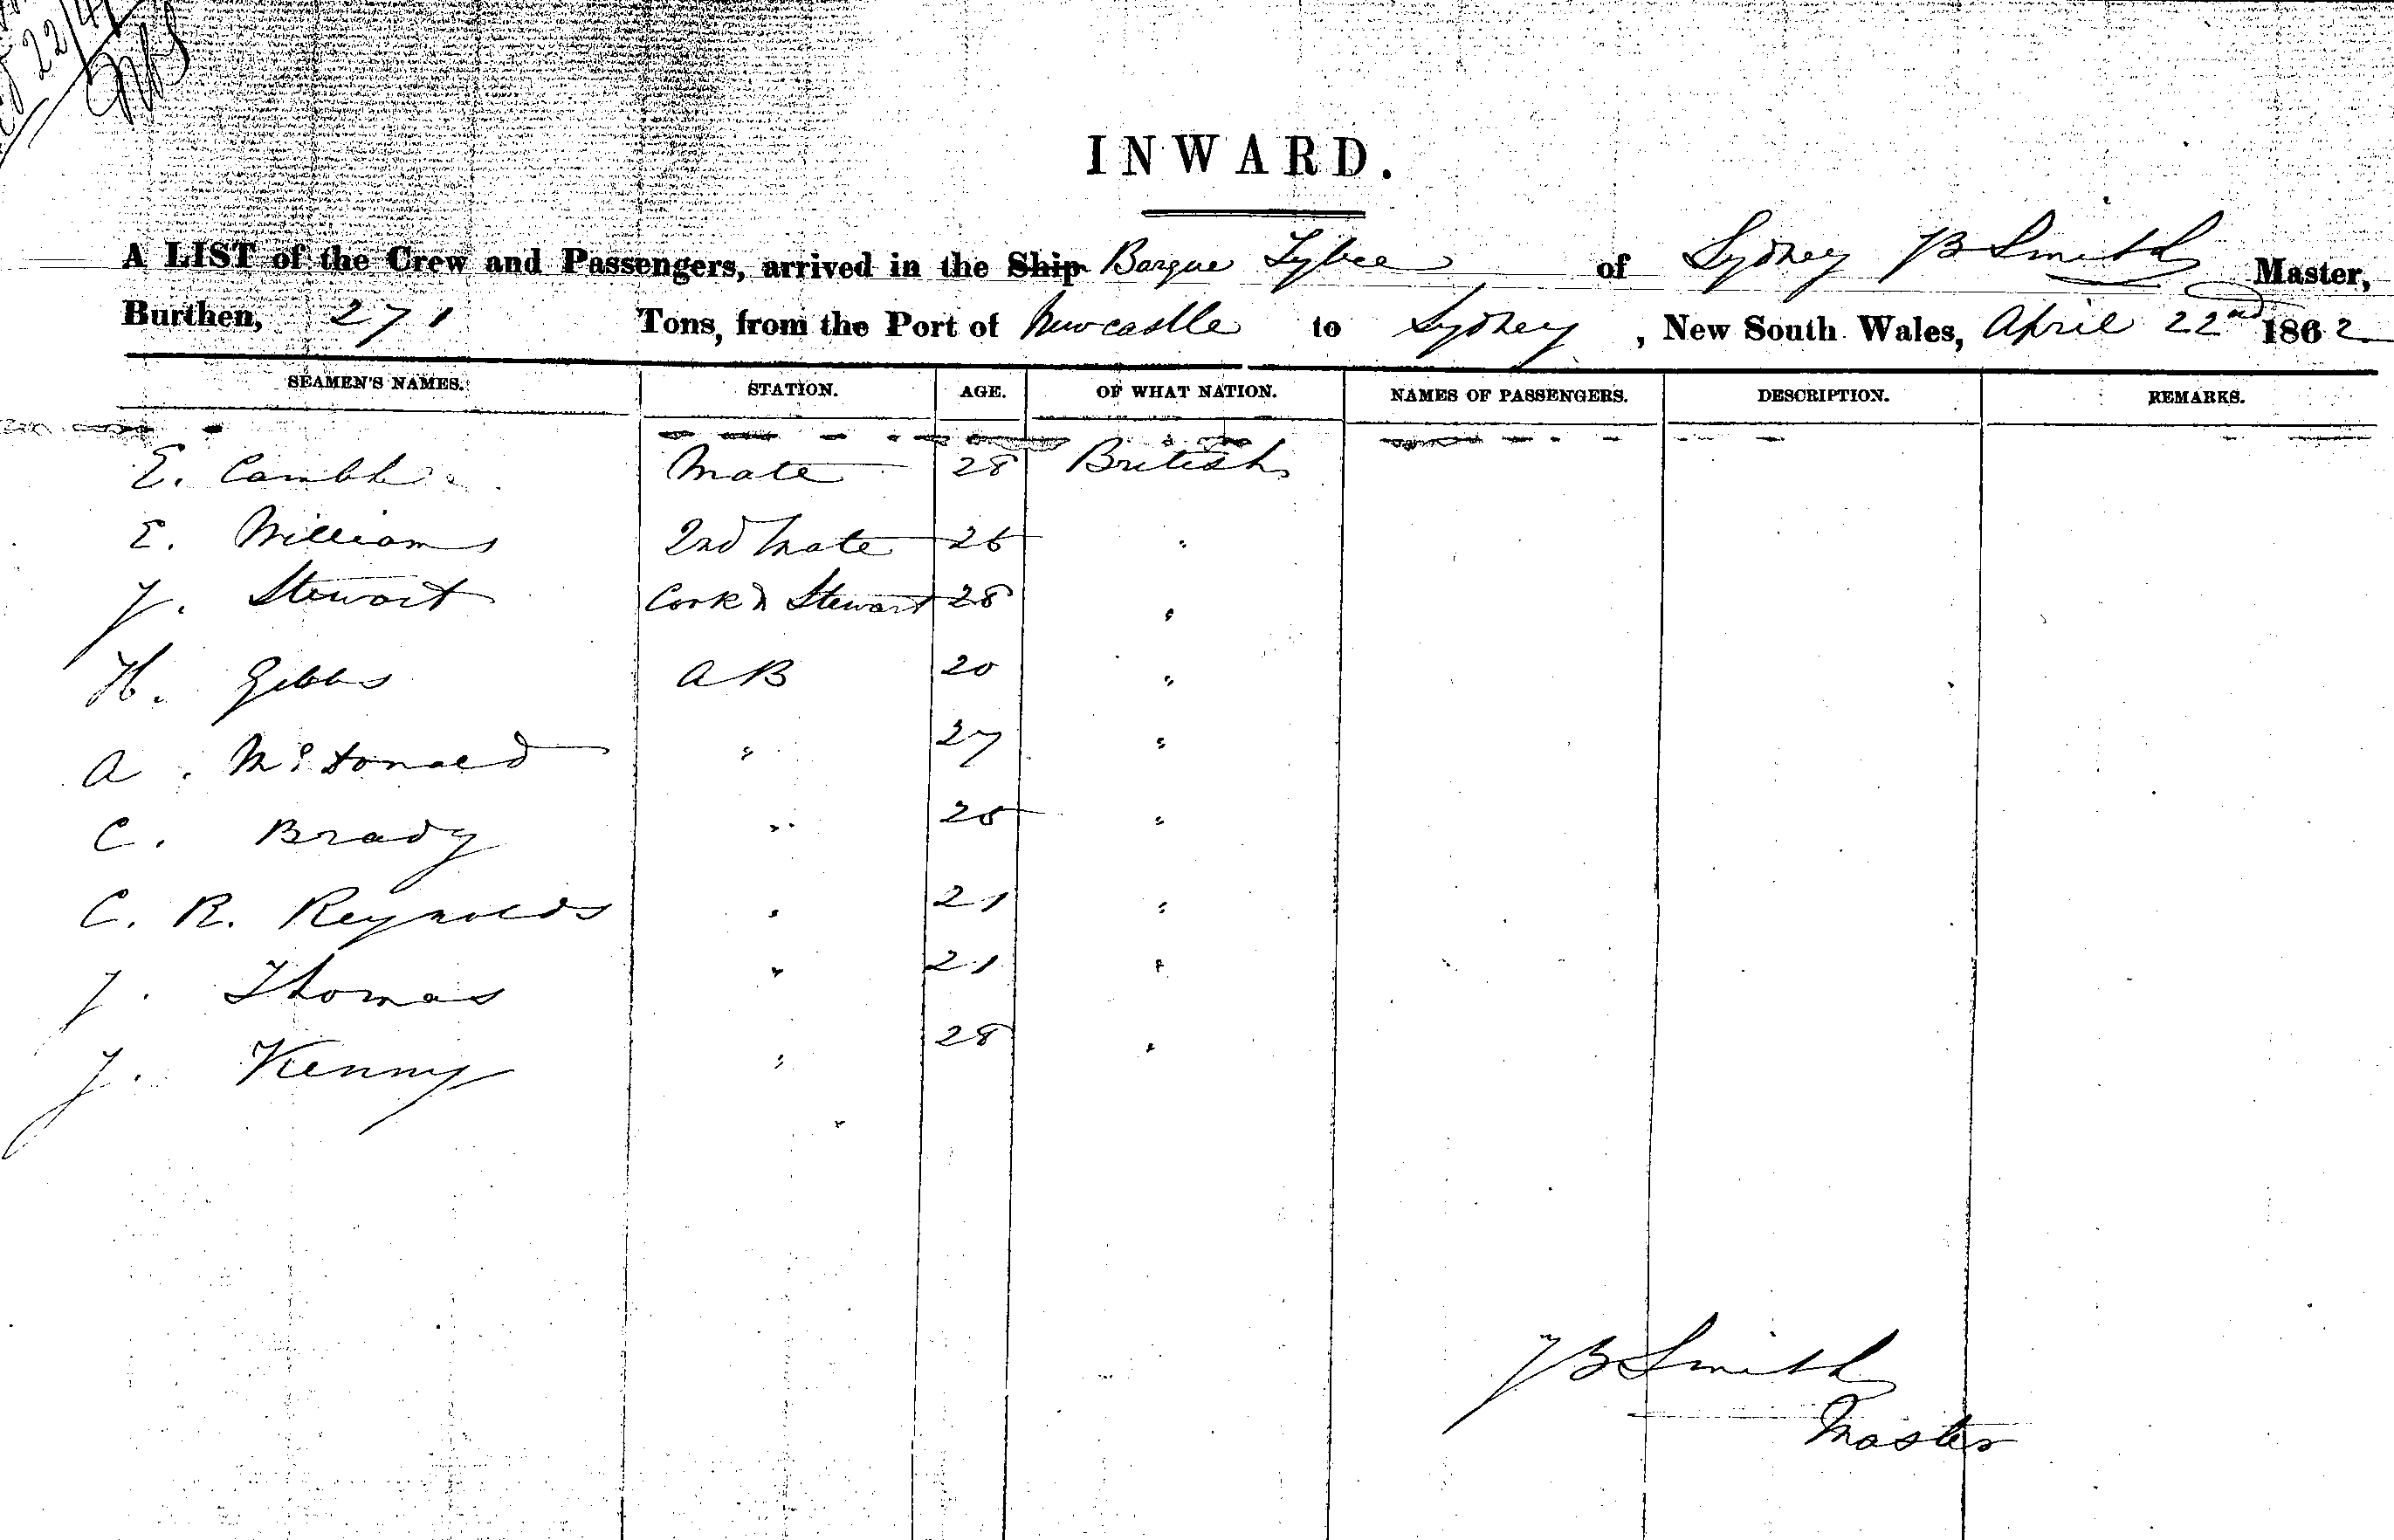 22/4
INWARD.
A LIST of the Crew and Passengers, arrived in the Ship Barque Tybee of Sydney B Smith Master,
Burthen, 271 Tons, from the Port of Newcastle to Sydney, New South Wales, April 22nd 1862
SEAMEN'S NAMES. STATION. AGE. OF WHAT NATION. NAMES OF PASSENGERS. DESCRIPTION. REMARKS.
E. Mate 28 British
E. Williams 2nd Mate 26 "
J. Stewart Cook & Stewart 28 "
H. Gibbs A B 20 "
A. McDonald " 27 "
C. Brady " 25 "
C. R. Reynolds " 21 "
J. Thomas " 21 "
J. Kenny " 28 "
J B Smith
Master